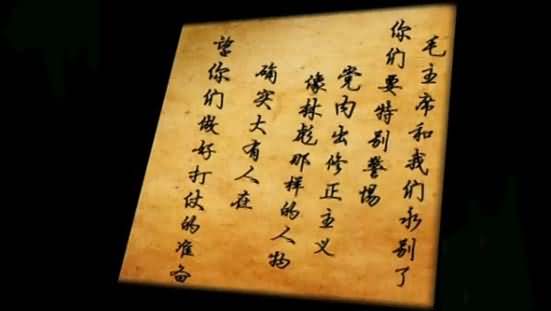 毛主席和我们永别了
你们要特别警惕
党内出修正主义
像林彪那样的人物
确实大有人在
望你们做好打仗的准备